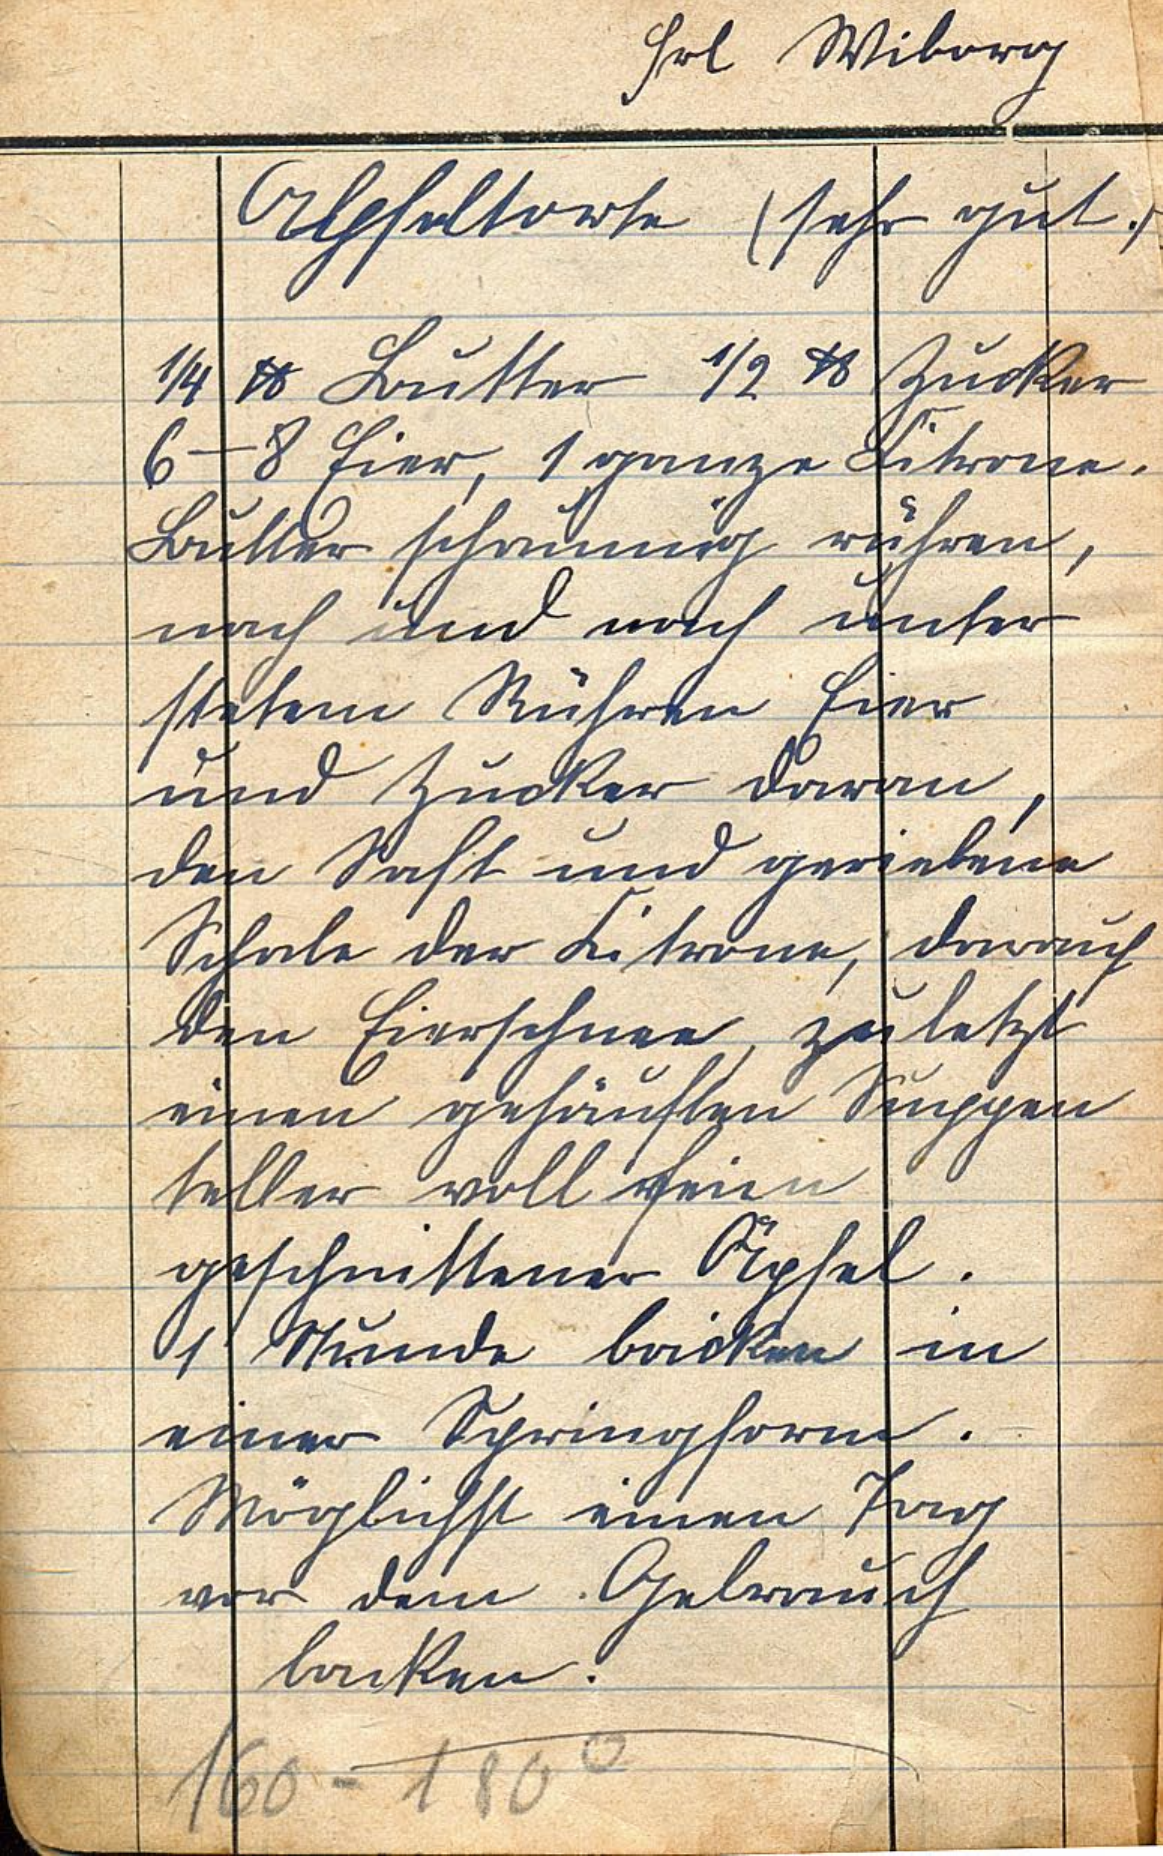 Frl Wiborg
Apfeltorte (sehr gut.)
1/4 ℔ Butter 1/2 ℔ Zucker
6–8 Eier, 1 ganze Citrone.
Butter schaumig rühren,
nach und nach unter
stetem Rühren Eier
und Zucker daran,
den Saft und geriebene
Schale der Citrone, darauf
den Eierschnee, zuletzt
einen gehäuften Suppen
teller voll fein
geschnittener Äpfel.
1 Stunde backen in
einer Springform.
Möglichst einen Tag
vor dem Gebrauch
backen.
160 - 180°